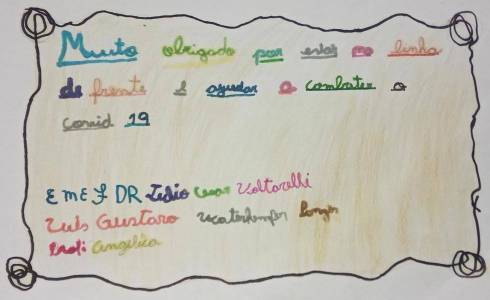 Muito obrigado por estar na linha
de frente e ajudar a combater o
covid 19
EMEF DR Lidio Cesar Voltarelli
Luis Gustavo
Prof: Angélica